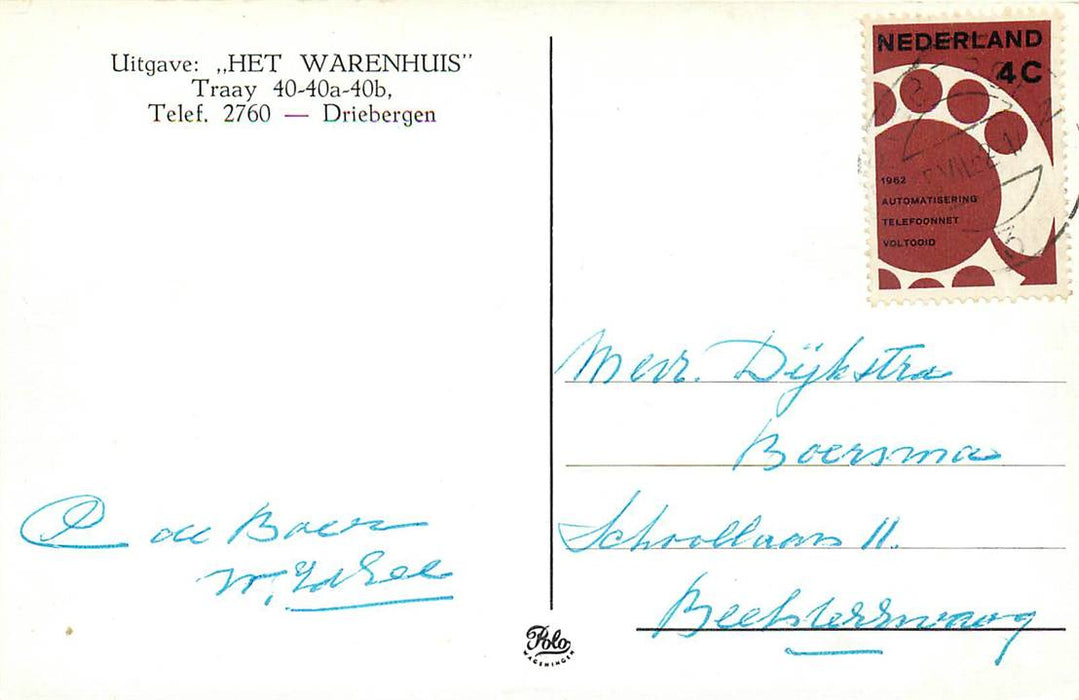 Uitgave: „HET WARENHUIS”
Traay 40-40a-40b,
Telef. 2760 — Driebergen
NEDERLAND
4C
1962
AUTOMATISERING
TELEFOONNET
VOLTOOID
Mevr. Dijkstra
Boersma
Schoollaan 11.
Beetsterzwaag
de Boer
Polo
WAGENINGEN